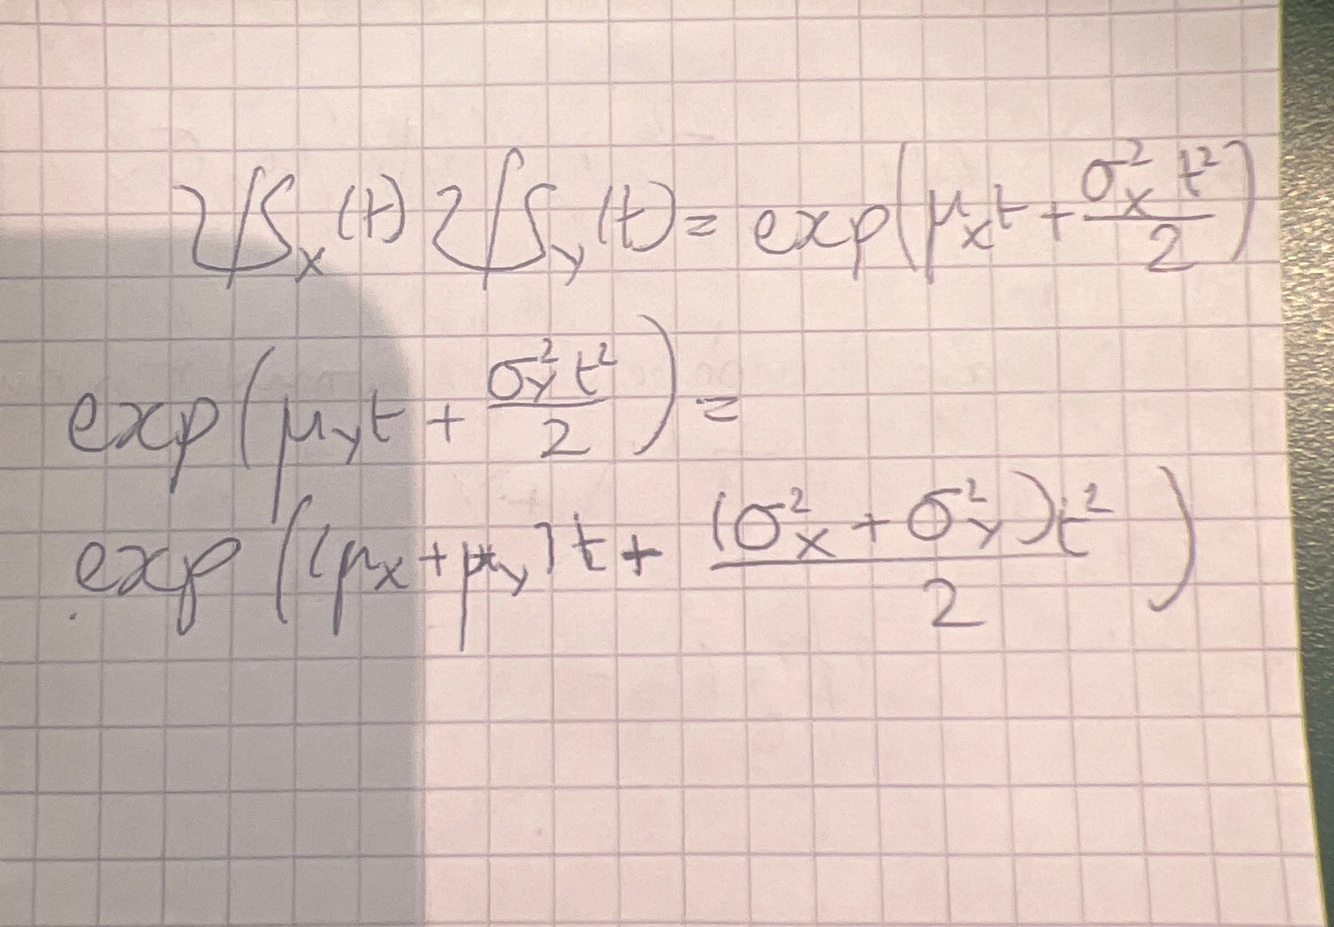 ψ_X(t) ψ_Y(t) = exp(μ_X t + σ_X² t² / 2)
exp(μ_Y t + σ_Y² t² / 2) =
exp((μ_X + μ_Y)t + (σ_X² + σ_Y²)t² / 2)